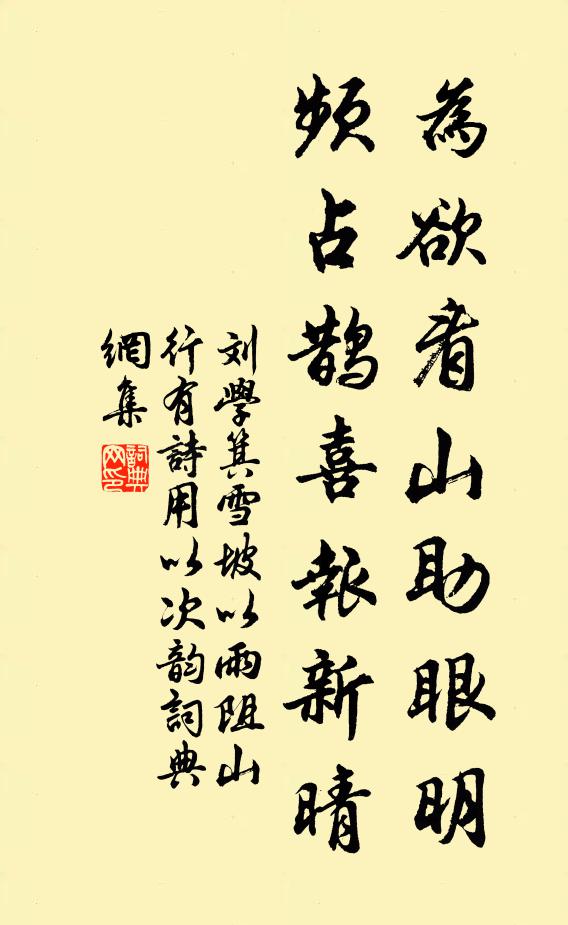 為欲看山助眼明
頻占鵲喜報新晴
刘學箕雪坡以雨阻山
行有詩用以次韵詞典
網集
詞典
网印